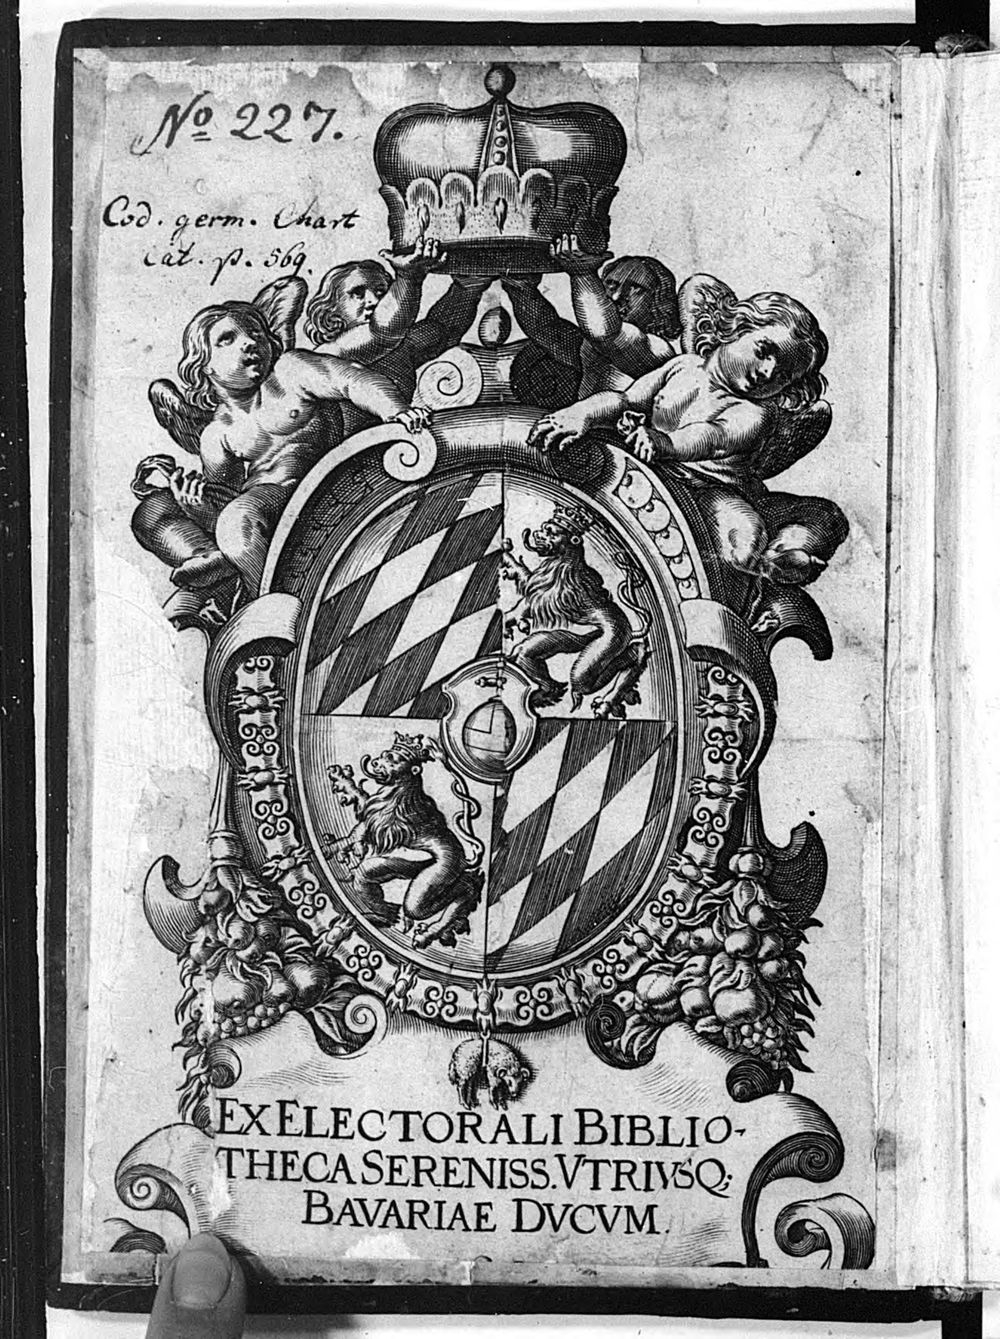 No 227.
Cod. germ. Chart
Cat. p. 569.
EX ELECTORALI BIBLIO-
THECA SERENISS. VTRIVSQ;
BAVARIAE DVCVM.